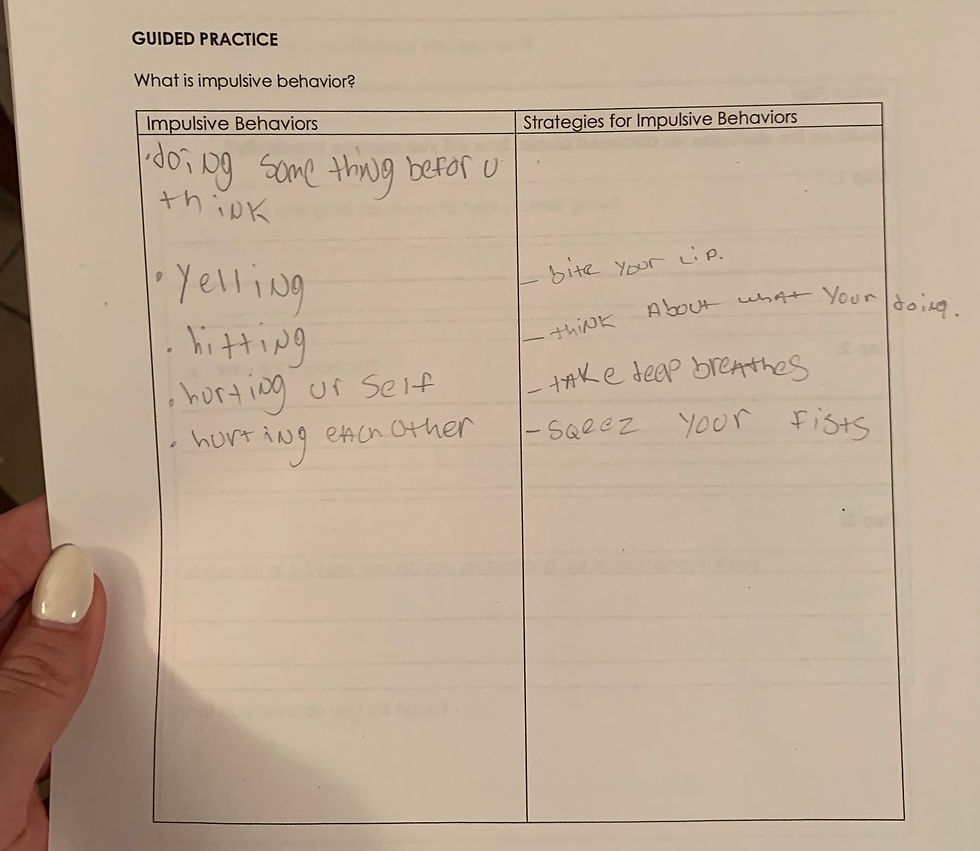 GUIDED PRACTICE
What is impulsive behavior?
Impulsive Behaviors
·doing some thing befor u
think
· Yelling
· hitting
· hurting ur self
· hurting each other
Strategies for Impulsive Behaviors
- bite your Lip.
- think About what Your doing.
- take deep breathes
- sqeez your fists